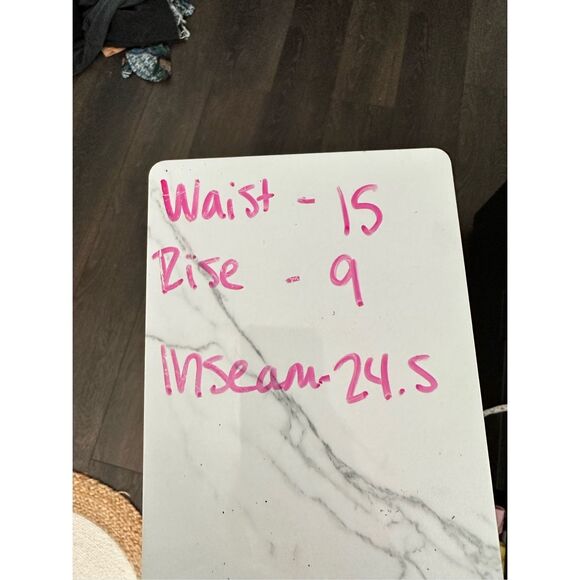 Waist - 15
Rise - 9
Inseam - 24.5